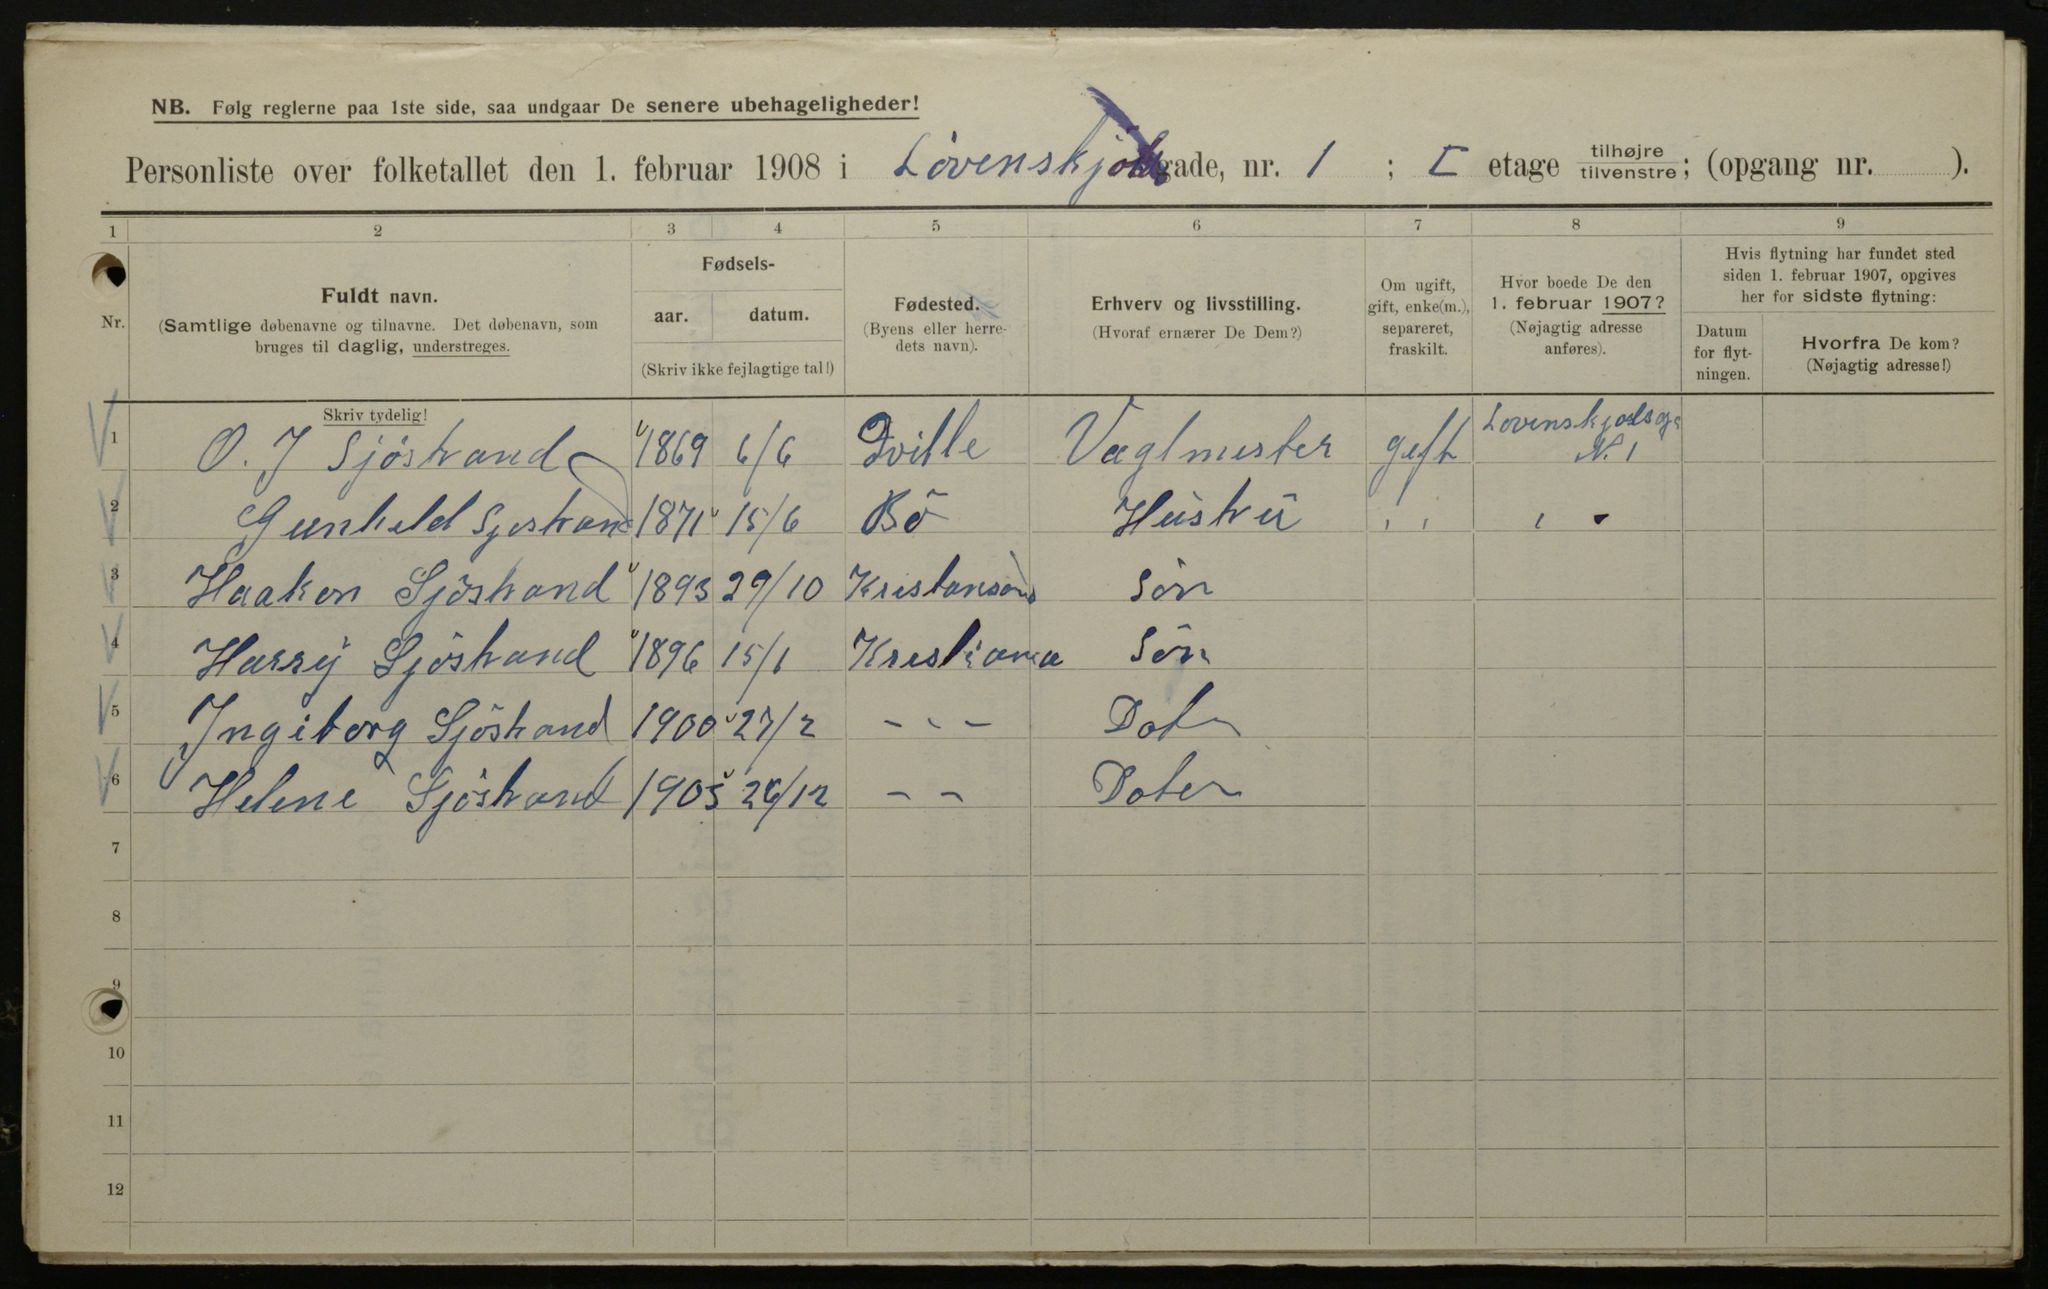 NB. Følg reglerne paa 1ste side, saa undgaar De senere ubehageligheder!
Personliste over folketallet den 1. februar 1908 i Lövenskjolds gade, nr. 1 ; I etage tilhøjre tilvenstre; (opgang nr. ).
1 2 3 4 5 6 7 8 9
Nr.
Fuldt navn.
(Samtlige døbenavne og tilnavne. Det døbenavn, som
bruges til daglig, understreges.
Skriv tydelig!
Fødsels-
aar. datum.
(Skriv ikke fejlagtige tal!)
Fødested.
(Byens eller herre-
dets navn).
Erhverv og livsstilling.
(Hvoraf ernærer De Dem?)
Om ugift,
gift, enke(m.),
separeret,
fraskilt.
Hvor boede De den
1. februar 1907?
(Nøjagtig adresse
anføres).
Hvis flytning har fundet sted
siden 1. februar 1907, opgives
her for sidste flytning:
Datum
for flyt-
ningen.
Hvorfra De kom?
(Nøjagtig adresse!)
1 O. J Sjöstrand 1869 6/6 Qville gift Lovenskjolsg N. 1
2 Gunhild Sjostrand 1871 15/6 Bö Hustrŭ " "
3 Haakon Sjöstrand 1893 29/10 Kristansand Sön
4 Harry Sjöstrand 1896 15/1 Kristiania Sön
5 Ingiborg Sjöstrand 1900 27/2 - - - Dater
6 Helene Sjöstrand 1905 26/12 - - Dater
7
8
9
10
11
12